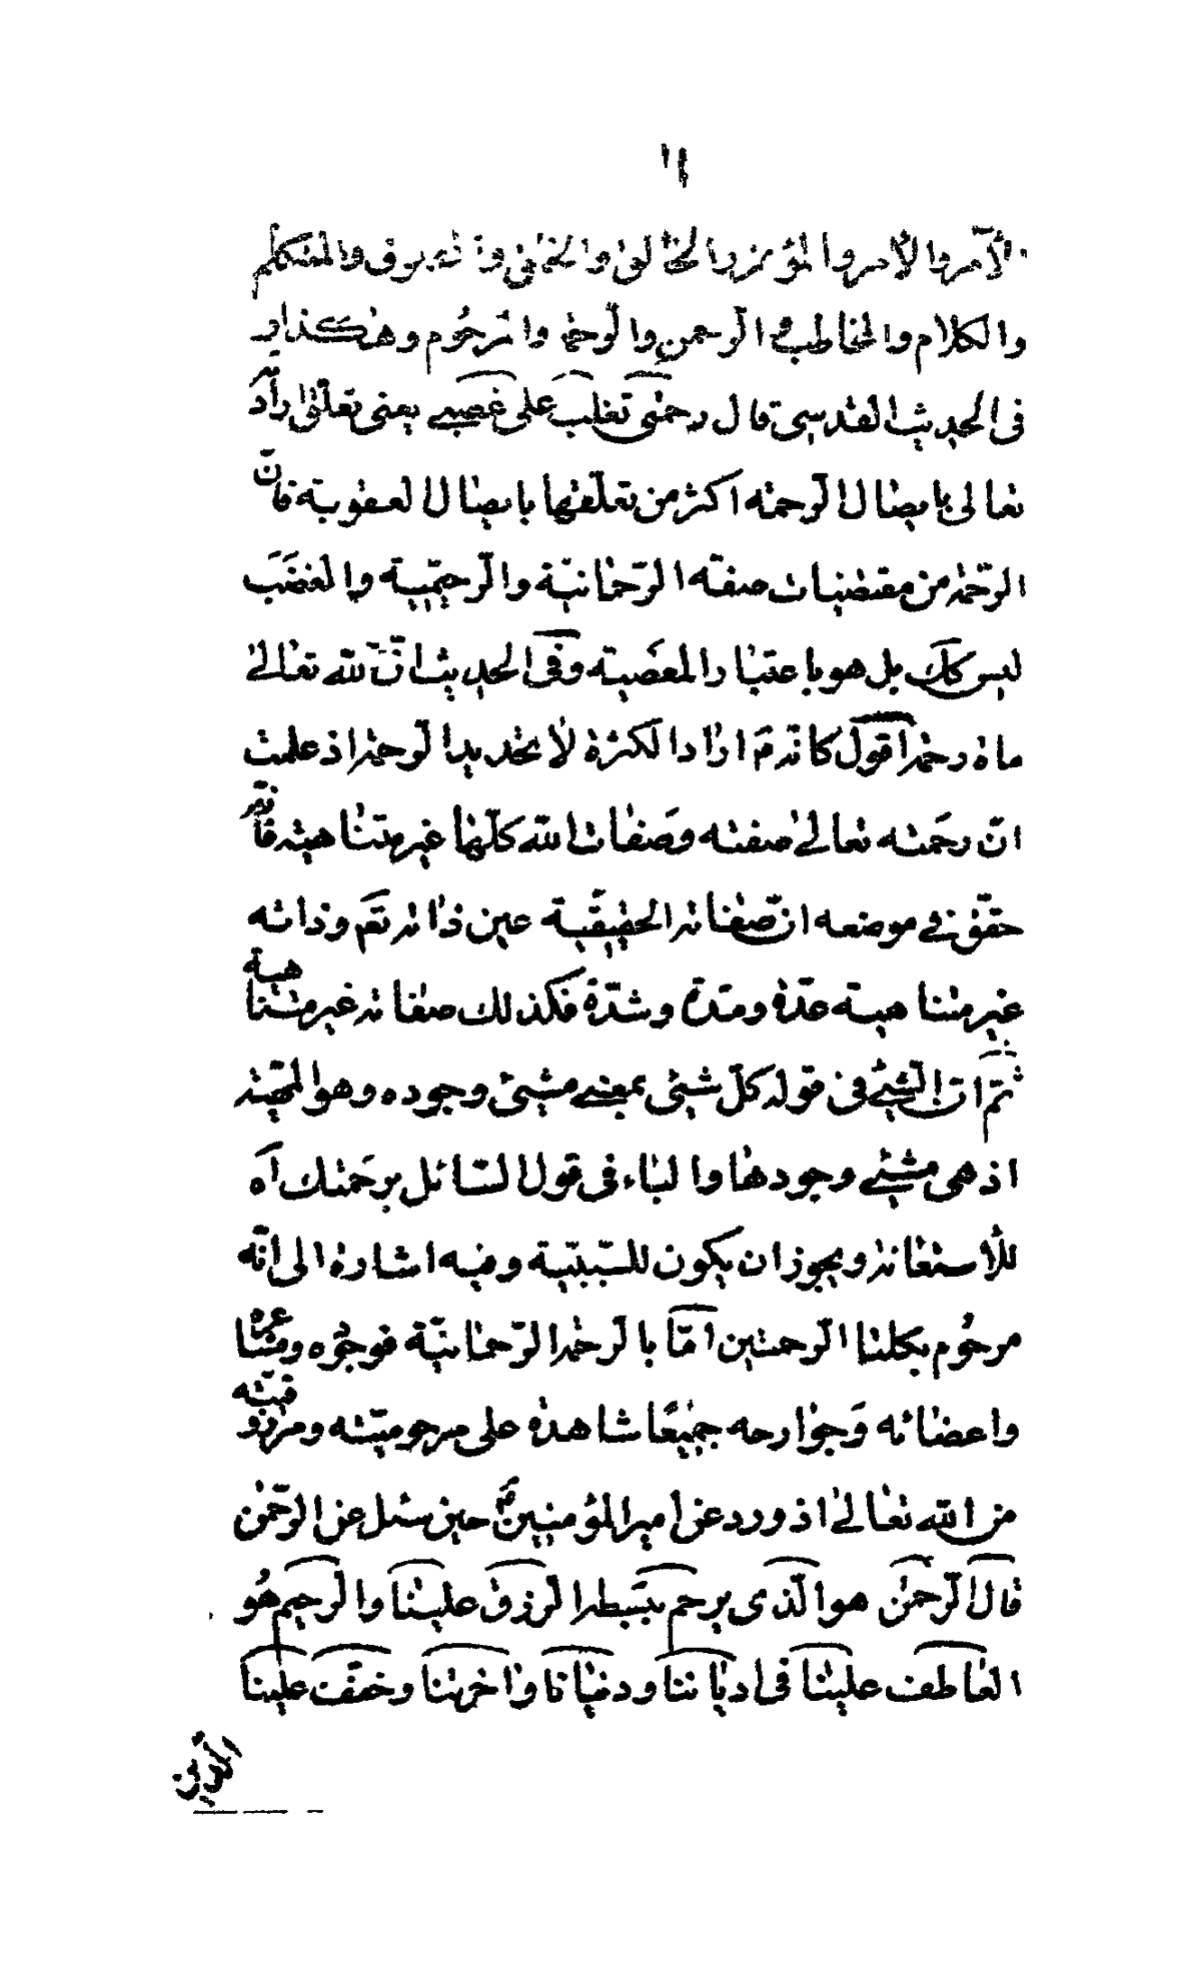 ١٤
الآمر والأمر والمؤتمر والخالق والخلق والمخلوق والمتكلم
والكلام والمخاطب والرحمن والرحمة والمرحوم وهكذا
فى الحديث القدسى قال رحمتى تغلب على غضبى يعنى تعلّق ارادته
تعالى بايصال الرحمة اكثر من تعلّقها بايصال العقوبة فانّ
الرّحمة من مقتضيات صفته الرّحمانيّة والرّحيميّة والغضب
ليس كك بل هو باعتبار المعصية وفى الحديث انّ لله تعالى
ماة رحمة اقول كانّه اراد الكثرة لا تحديد الرحمة اذ علمت
انّ رحمته تعالى صفته وصفات الله كلّها غير متناهية فانّه
حقّق فى موضعه انّ صفاته الحقيقيّة عين ذاته تع وذاته
غير متناهية عدّة ومدّة وشدّة فكذلك صفاته غير متناهية
ثمّ انّ الشيئ فى قوله كلّ شيئ بمعنى مشيئ وجوده وهو المهيّة
اذ هى مشيئ وجودها والباء فى قول السّائل برحمتك آه
للاستعانة ويجوز ان يكون للسّببيّة وفيه اشارة الى انّه
مرحوم بكلتا الرحمتين امّا بالرحمة الرّحمانيّة فوجوده ومشاعره
واعضائه وجوارحه جميعًا شاهدة على مرحوميّته ومرزوقيّته
من الله تعالى اذ ورد عن امير المؤمنين ع حين سئل عن الرّحمن
قال الرّحمن هو الّذى يرحم ببسط الرزق علينا والرحيم هو
العاطف علينا فى اديٰاننا ودنيانا وآخرتنا وخفّف علينا
الدين